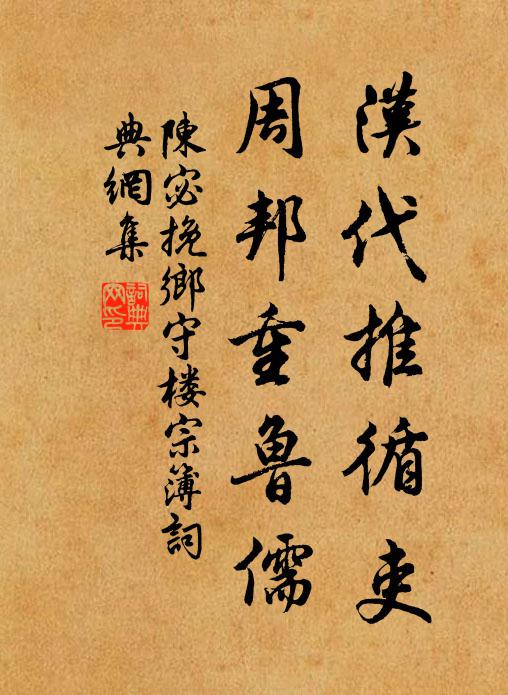 漢代推循吏
周邦重魯儒
陳宓挽鄉守楼宗簿詞
典網集
詞典网印